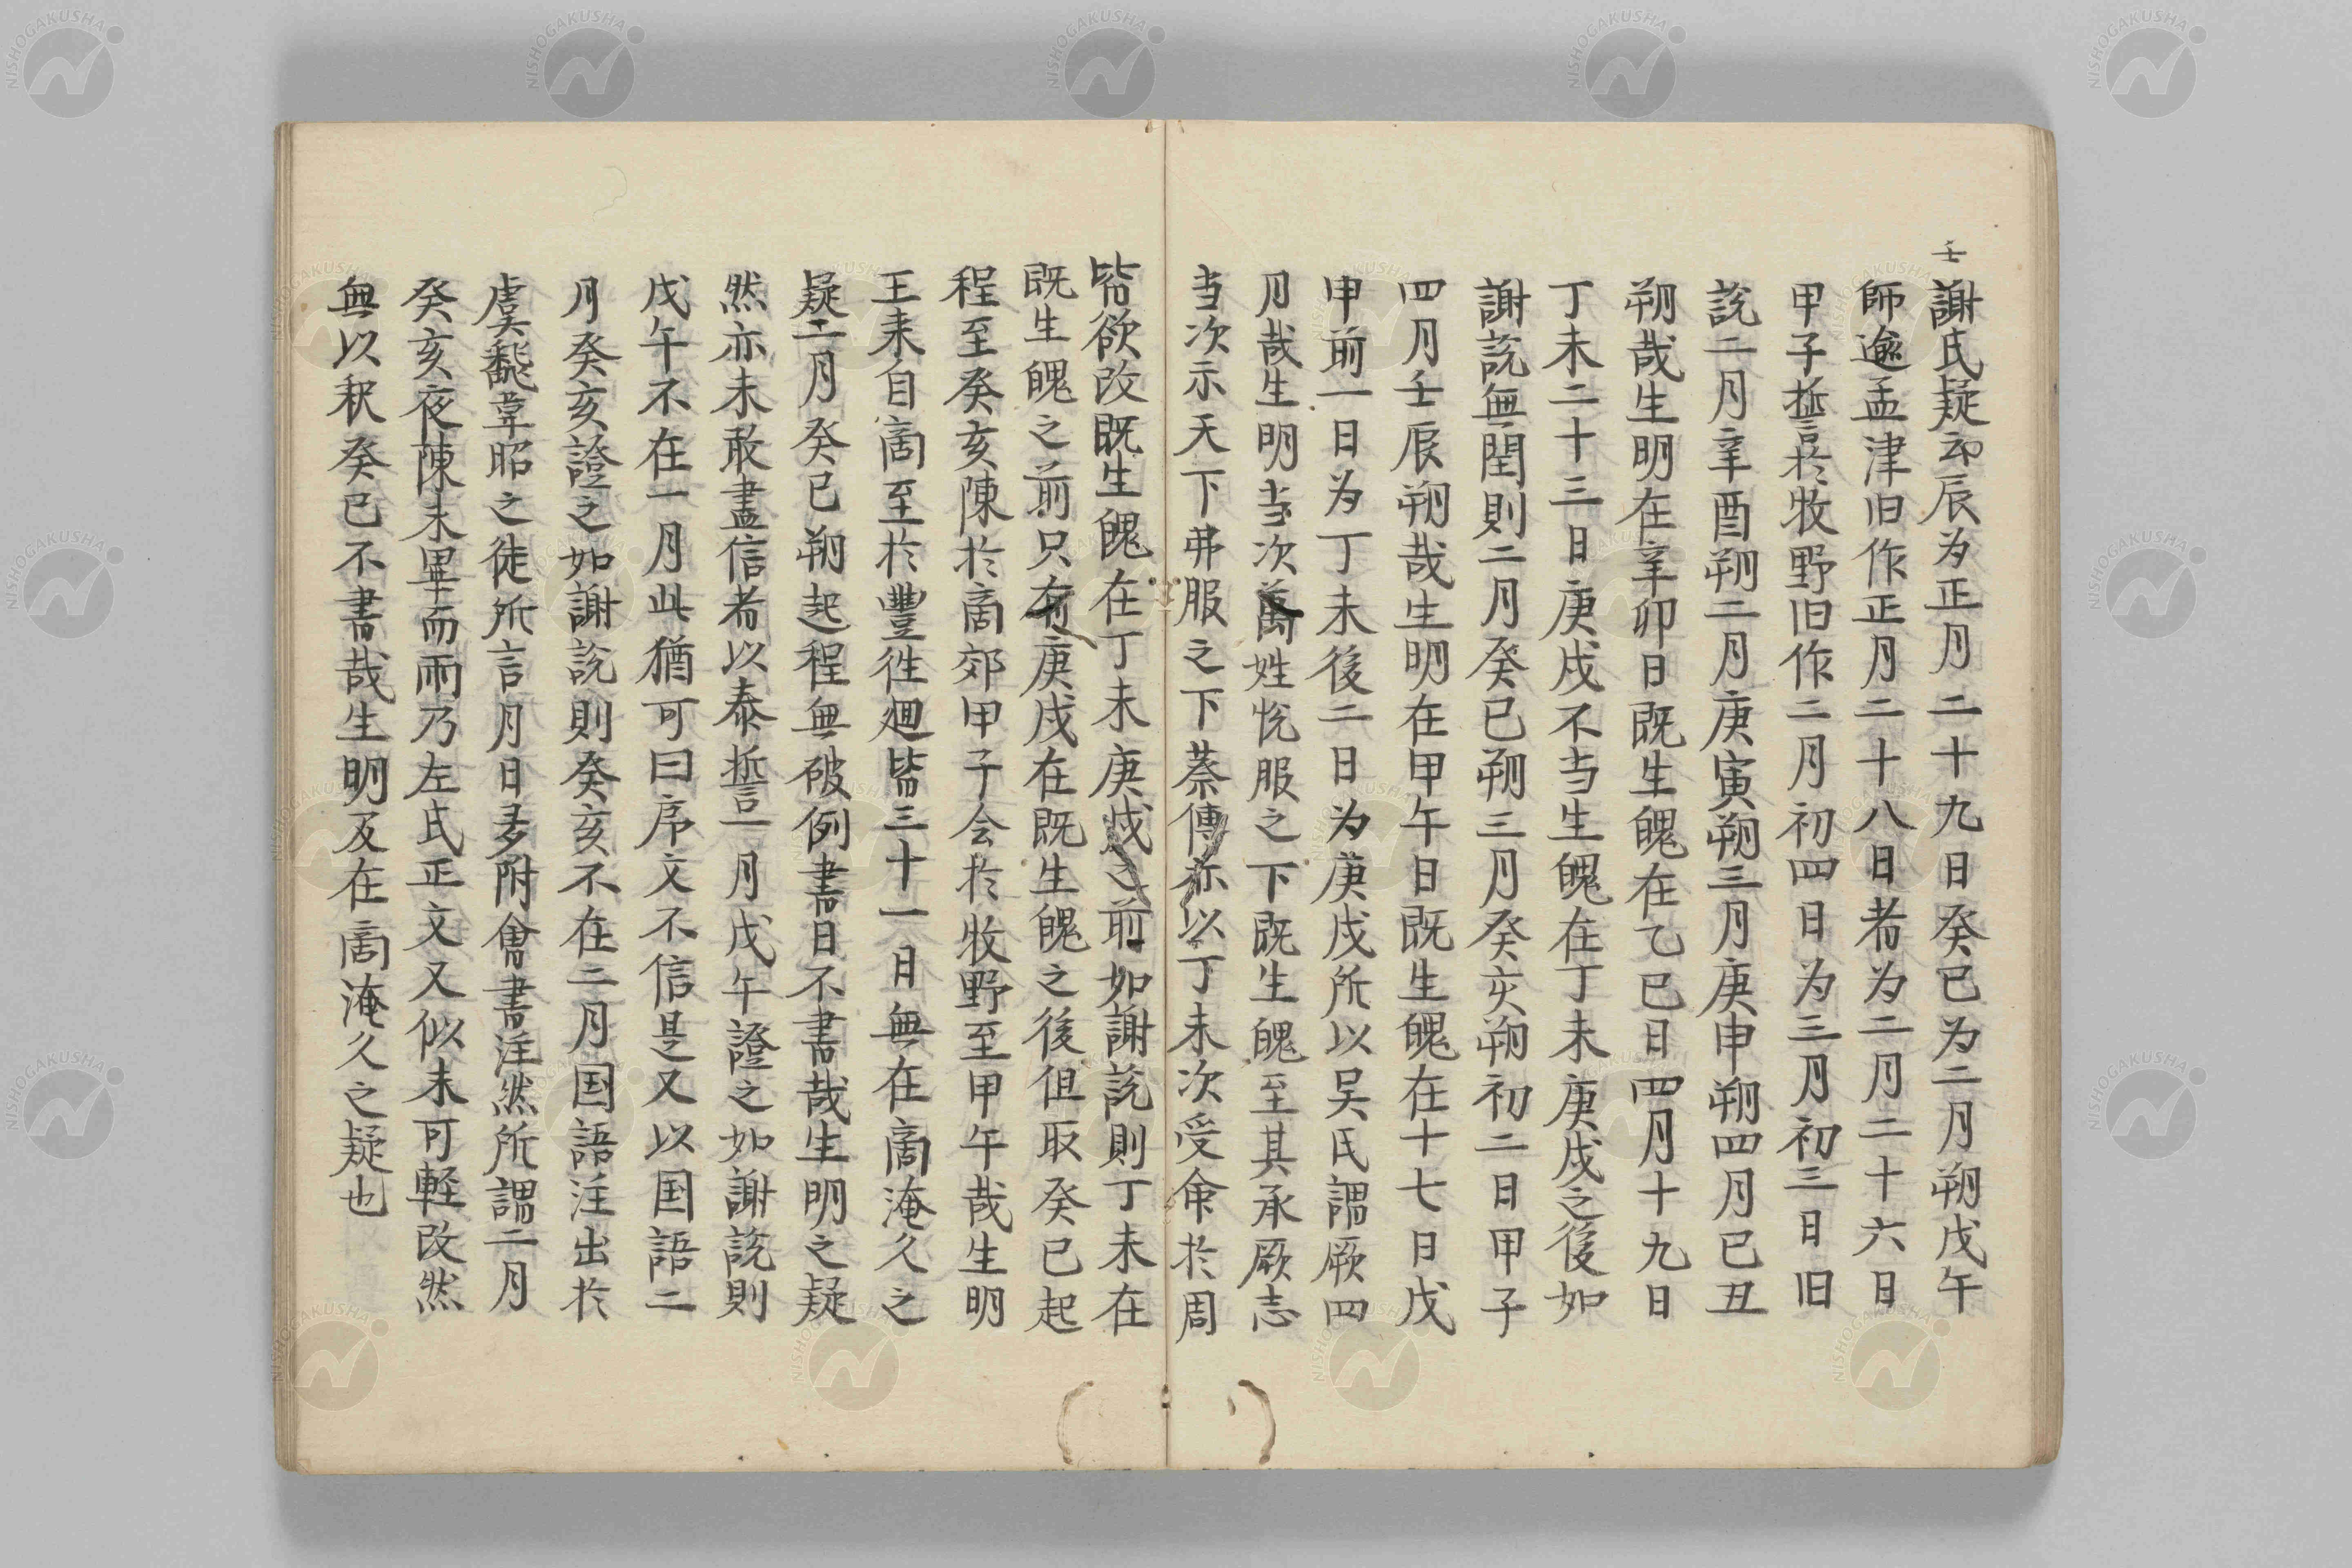 壬
謝氏疑卯辰为正月二十九日癸已为二月朔戊午
師逾孟津旧作正月二十八日者为二月二十六日
甲子誓於牧野旧作二月初四日为三月初三日旧
説二月辛酉朔二月庚寅朔三月庚申朔四月已丑
朔哉生明在辛卯日既生魄在乙巳日四月十九日
丁未二十三日庚戌不当生魄在丁未庚戌之後如
謝説無閏則二月癸已朔三月癸亥朔初二日甲子
四月壬辰朔哉生明在甲午日既生魄在十七日戊
申前一日为丁未後二日为庚戌所以吴氏謂厥四
月哉生明当次萬姓悦服之下既生魄至其承厥志
当次示天下弗服之下蔡傳亦以丁未次受命於周
皆欲改既生魄在丁未庚戌之前如謝説則丁未在
既生魄之前只有庚戌在既生魄之後但取癸已起
程至癸亥陳於商郊甲子会於牧野至甲午哉生明
王来自商至於豐徃廻皆三十一日無在商淹久之
疑二月癸已朔起程無破例書日不書哉生明之疑
然亦未敢盡信者以泰誓一月戊午證之如謝説則
戊午不在一月此猶可曰序文不信是又以国語二
月癸亥證之如謝説則癸亥不在二月国語注出於
虞飜韋昭之徒所言月日多附會書注然所謂二月
癸亥夜陳未畢而雨乃左氏正文又似未可軽改然
無以釈癸已不書哉生明及在商淹久之疑也
NISHOGAKUSHA